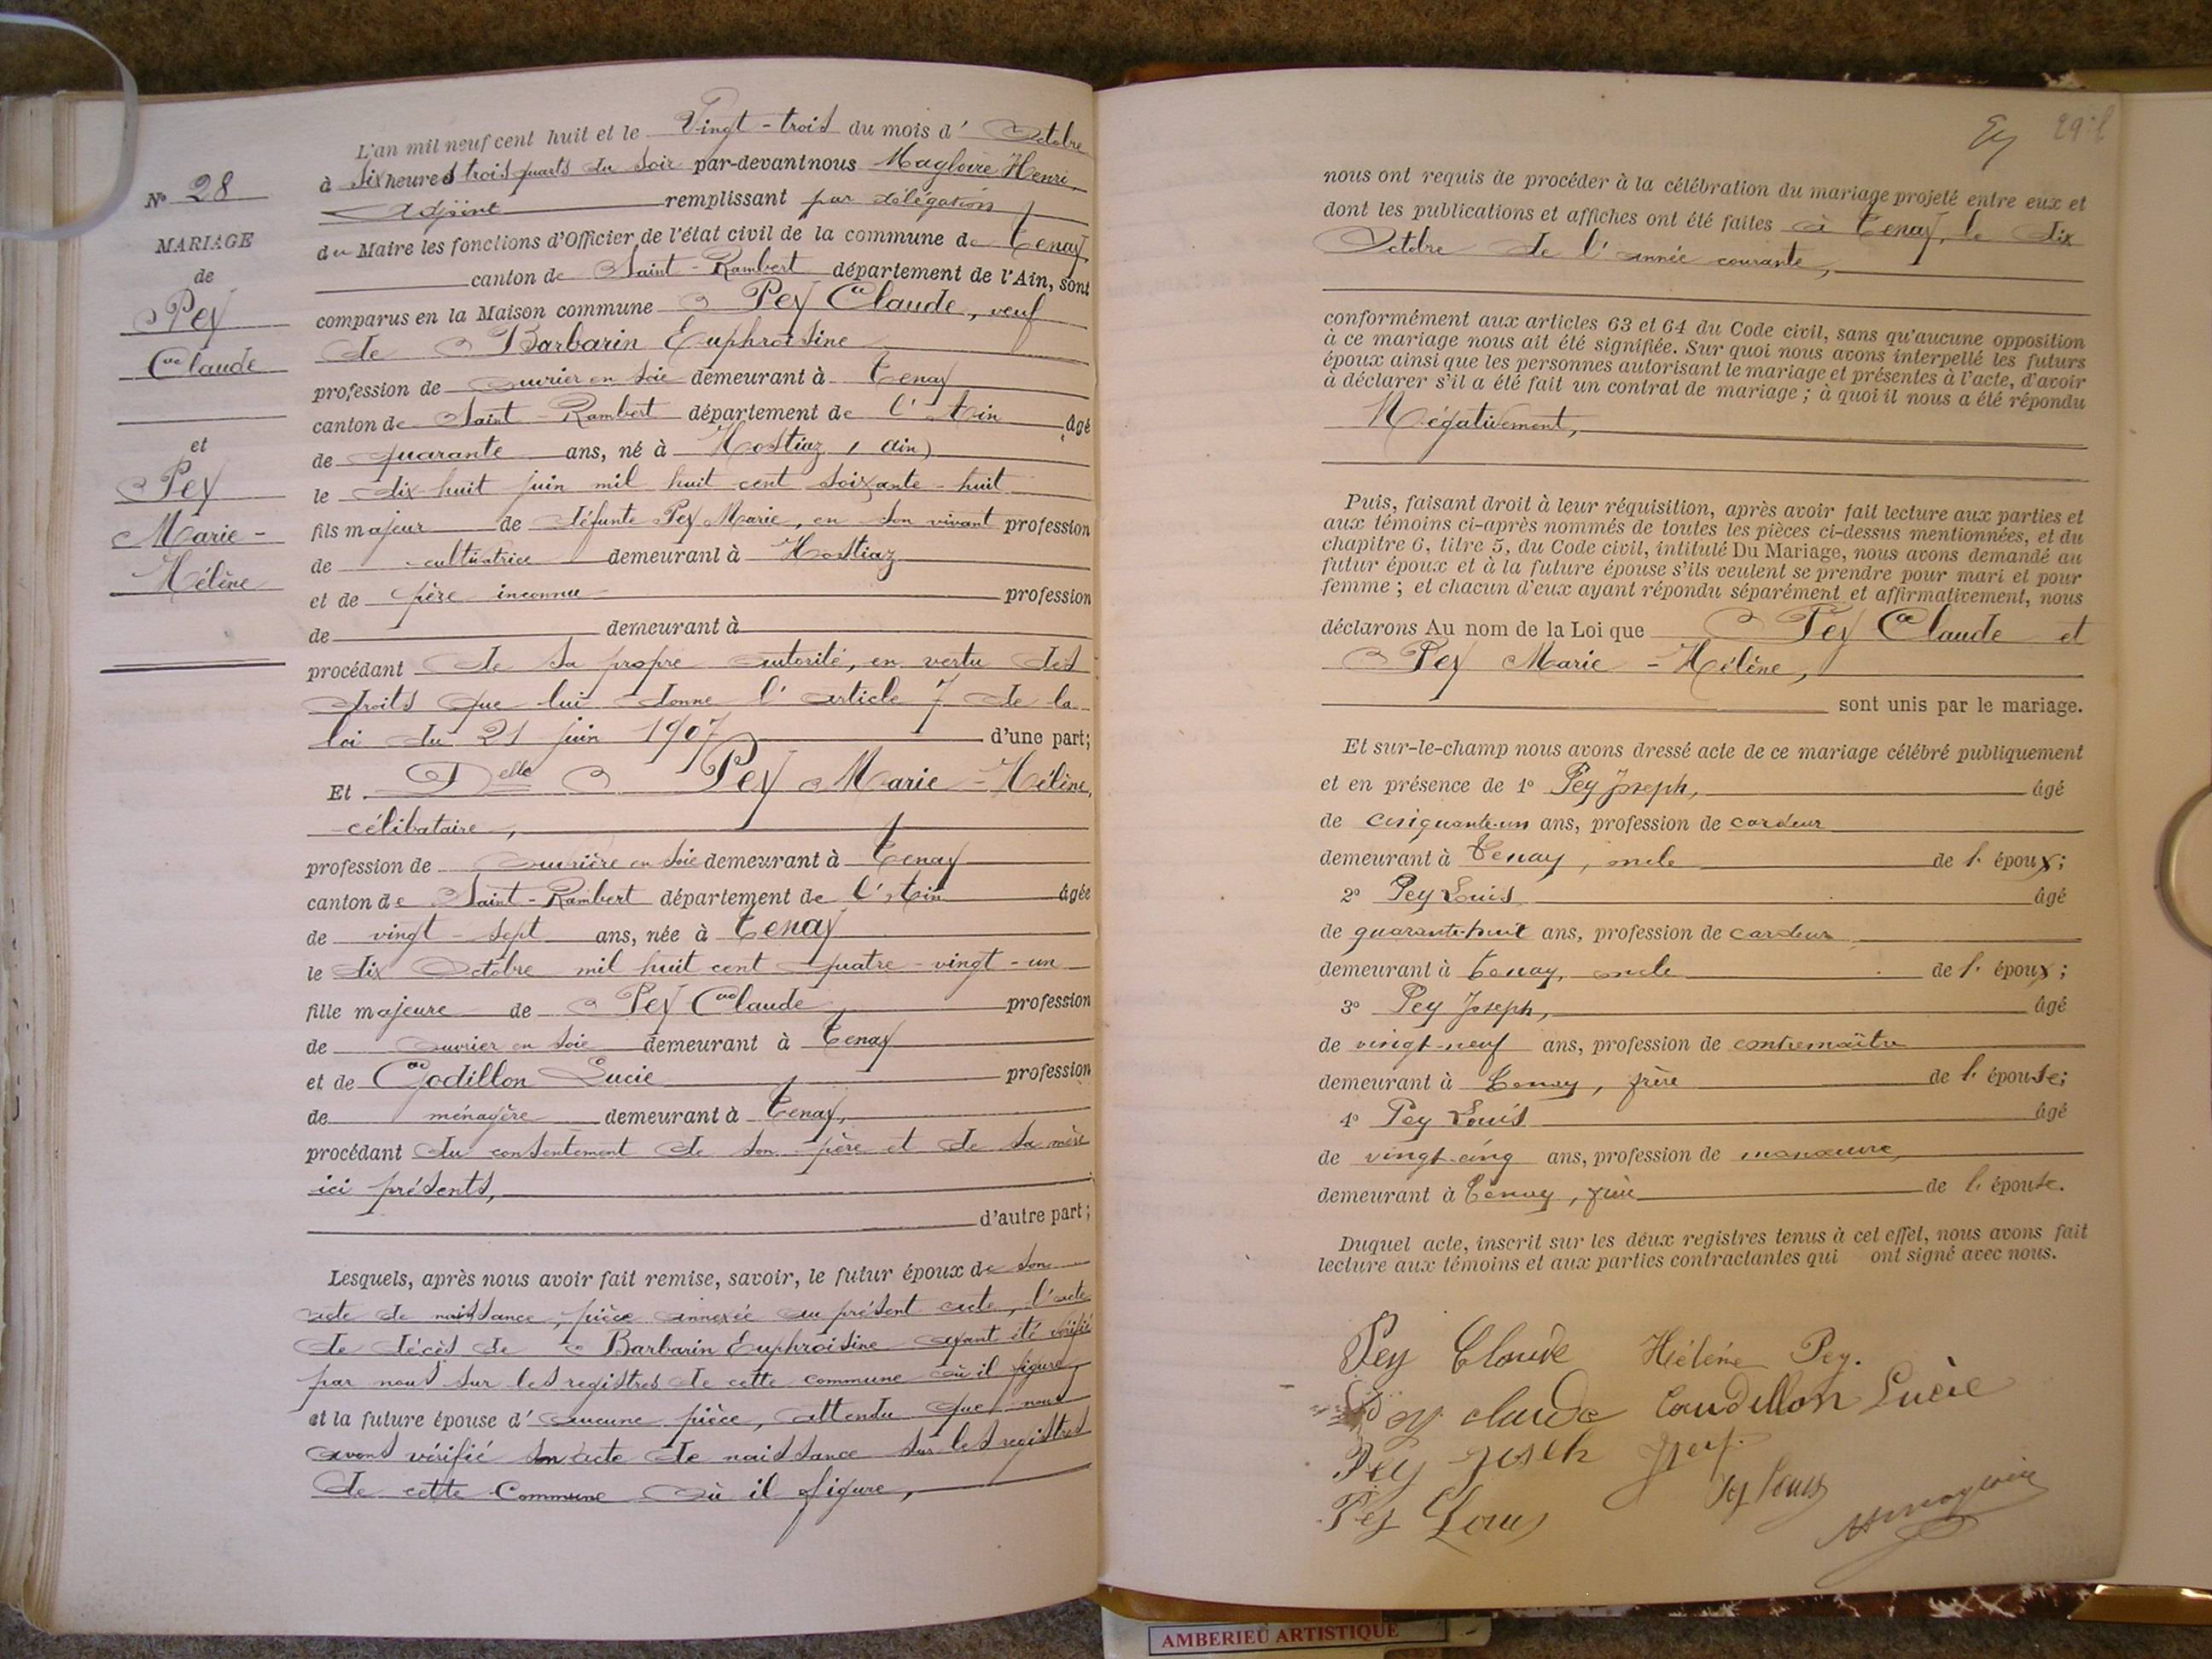 L'an mil neuf cent huit et le Vingt-trois du mois d' Octobre
à six heures trois quarts du soir par-devant nous Magloire Henri,
Adjoint remplissant par délégation
du Maire les fonctions d'Officier de l'état civil de la commune de Tenay,
canton de Saint-Rambert département de l'Ain, sont
comparus en la Maison commune Pey Claude, veuf
de Barbarin Euphroisine
profession de ouvrier en soie demeurant à Tenay
canton de Saint-Rambert département de l'Ain âgé
de quarante ans, né à Hostiaz (Ain)
le dix huit juin mil huit cent soixante-huit
fils majeur de défunte Pey Marie, en son vivant profession
de cultivatrice demeurant à Hostiaz
et de père inconnu profession
de demeurant à
procédant de sa propre autorité, en vertu des
droits que lui donne l'article 7 de la
loi du 21 juin 1907 d'une part;
Et Delle Pey Marie-Hélène,
célibataire,
profession de ouvrière en soie demeurant à Tenay
canton de Saint-Rambert département de l'Ain âgée
de vingt-sept ans, née à Tenay
le dix Octobre mil huit cent quatre-vingt-un
fille majeure de Pey Claude profession
de ouvrier en soie demeurant à Tenay
et de Godillon Lucie profession
de ménagère demeurant à Tenay,
procédant du consentement de son père et de sa mère
ici présents,
d'autre part;
Lesquels, après nous avoir fait remise, savoir, le futur époux de son
acte de naissance, pièce annexée au présent acte, l'acte
de décès de Barbarin Euphroisine ayant été vérifié
par nous sur les registres de cette commune où il figure,
et la future épouse d'aucune pièce, attendu que nous
avons vérifié son acte de naissance sur les registres
de cette Commune où il figure,
N° 28
MARIAGE
de
Pey
Claude
et
Pey
Marie-
Hélène
nous ont requis de procéder à la célébration du mariage projeté entre eux et
dont les publications et affiches ont été faites à Tenay, le dix
Octobre de l'année courante,
conformément aux articles 63 et 64 du Code civil, sans qu'aucune opposition
à ce mariage nous ait été signifiée. Sur quoi nous avons interpellé les futurs
époux ainsi que les personnes autorisant le mariage et présentes à l'acte, d'avoir
à déclarer s'il a été fait un contrat de mariage; à quoi il nous a été répondu
Négativement,
Puis, faisant droit à leur réquisition, après avoir fait lecture aux parties et
aux témoins ci-après nommés de toutes les pièces ci-dessus mentionnées, et du
chapitre 6, titre 5, du Code civil, intitulé Du Mariage, nous avons demandé au
futur époux et à la future épouse s'ils veulent se prendre pour mari et pour
femme; et chacun d'eux ayant répondu séparément et affirmativement, nous
déclarons Au nom de la Loi que Pey Claude et
Pey Marie-Hélène,
sont unis par le mariage.
Et sur-le-champ nous avons dressé acte de ce mariage célébré publiquement
et en présence de 1° Pey Joseph, âgé
de cinquante-un ans, profession de cardeur
demeurant à Tenay, oncle de l'époux;
2° Pey Louis âgé
de quarante-huit ans, profession de cardeur
demeurant à Tenay, oncle de l'époux;
3° Pey Joseph, âgé
de vingt-neuf ans, profession de contremaître
demeurant à Tenay, frère de l'épouse;
4° Pey Louis âgé
de vingt-cinq ans, profession de manœuvre,
demeurant à Tenay, frère de l'épouse.
Duquel acte, inscrit sur les deux registres tenus à cet effet, nous avons fait
lecture aux témoins et aux parties contractantes qui ont signé avec nous.
Pey Claude Hélène Pey.
Pey claude Caudillon Lucie
Pey Joseh J Pey
Pey Louis
Pey Louis
H Magloire
AMBERIEU ARTISTIQUE